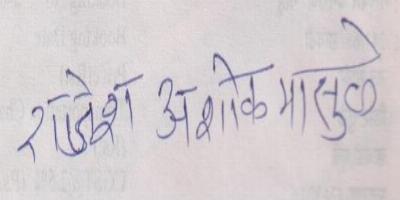 राजेश अशोक मासुळे